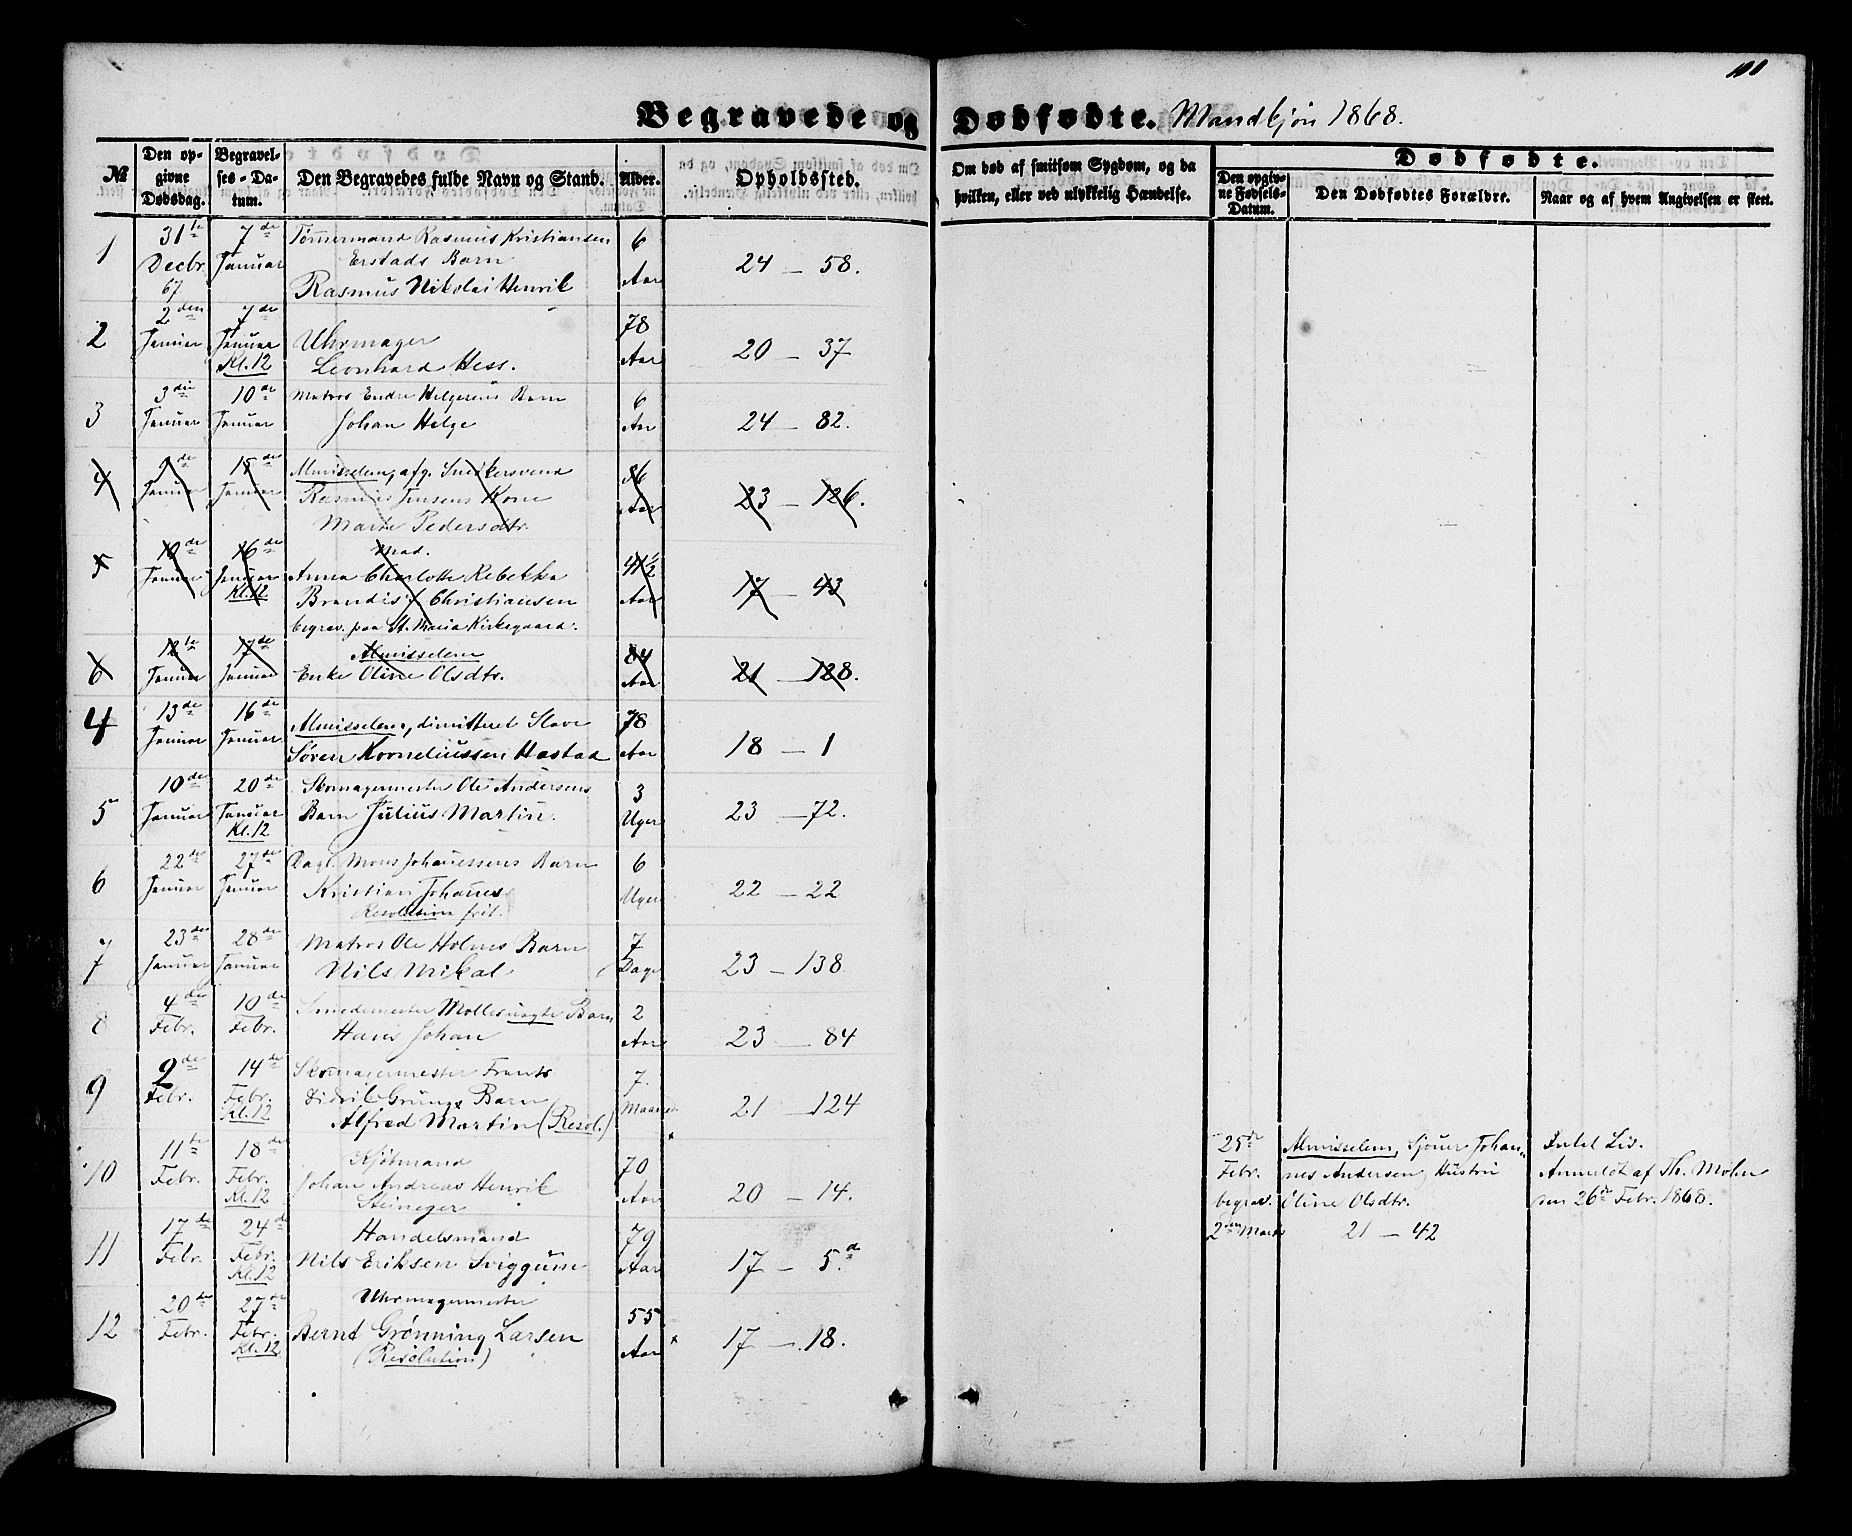 100
Begravede og Dødfødte. Mandkjøn 1868.
№
Den opgivne Dødsdag.
Begravelses-Datum.
Den Begravedes fulde Navn og Stand.
Alder.
Opholdssted.
Om død af smitsom Sygdom, og da hvilken, eller ved ulykkelig Hændelse.
Dødfødte.
Den opgivne Fødsels-Datum.
Den Dødfødtes Forældre.
Naar og af hvem Angivelsen er skeet.
1 31te Decbr 67 7de Januar Tømermand Rasmus Kristiansen 6 Aar 24 - 58.
Erstads Barn
Rasmus Nikolai Henrik
2 2den Januar 7de Januar Kl. 12 Uhrmager 78 Aar 20 - 37
Leonhard Hess.
3 3die Januar 10de Januar Matros Endre Helgesens Barn 6 Aar 24 - 82.
Johan Helge
4 9de Januar 15de Januar Almisselem, afg. Snedkersvend 86 Aar 23 - 126.
Rasmus Jensens Kone
Marte Pedersdtr.
5 10de Januar 16de Januar Kl. 12 Mad. 41½ Aar 17 - 43
Anna Charlotte Rebekka
Brandis f. Christiansen
begrav. paa St. Maria Kirkegaard.
6 12te Januar 17de Januar Almisselem 84 Aar 21 - 128.
Enke Oline Olsdtr.
4 13de Januar 16de Januar Almisselem, dimitteret Slave 78 Aar 18 - 1
Søren Korneliussen Hæstad
5 10de Januar 20de Januar Kl. 12 Skomagermester Ole Andersens 3 Uger 23 - 72.
Barn Julius Martin.
6 22de Januar 27de Januar Dagl. Mons Johannessens Barn 6 Uger 22 - 22
Kristian Johannes
Resolution frit.
7 23de Januar 28de Januar Matros Ole Holms Barn 7 Dage 23 - 138
Nils Mikal
8 4de Febr. 10de Febr. Smedemester Mollervogts Barn 2 Aar 23 - 84
Hans Johan
9 9de Febr. 14de Febr. Kl. 12 Skomagermester Frants 7 Maaned. 21 - 124
Didrik Grungs Barn
Alfred Martin (Resol.)
10 11te Febr. 18de Febr. Kl. 12 Kjøbmand 70 Aar 20 - 14.
Johan Andreas Henrik
Steineger
11 17de Febr. 24de Febr. Kl. 12 Handelsmand 79 Aar 17 - 5.d
Nils Eriksen Sviggum
12 20de Febr. 27de Febr. Kl. 12 Uhrmagermester 55 Aar 17 - 18.
Bernt Grønning Larsen
(Resolution)
25de Almisselem, Sjouer Johan- Intet Liv.
Febr. nes Andersen, Hustru Anmeldt af Th. Mohn
begrav. Oline Olsdtr. den 26de Febr. 1868.
2den Marts 21 - 42